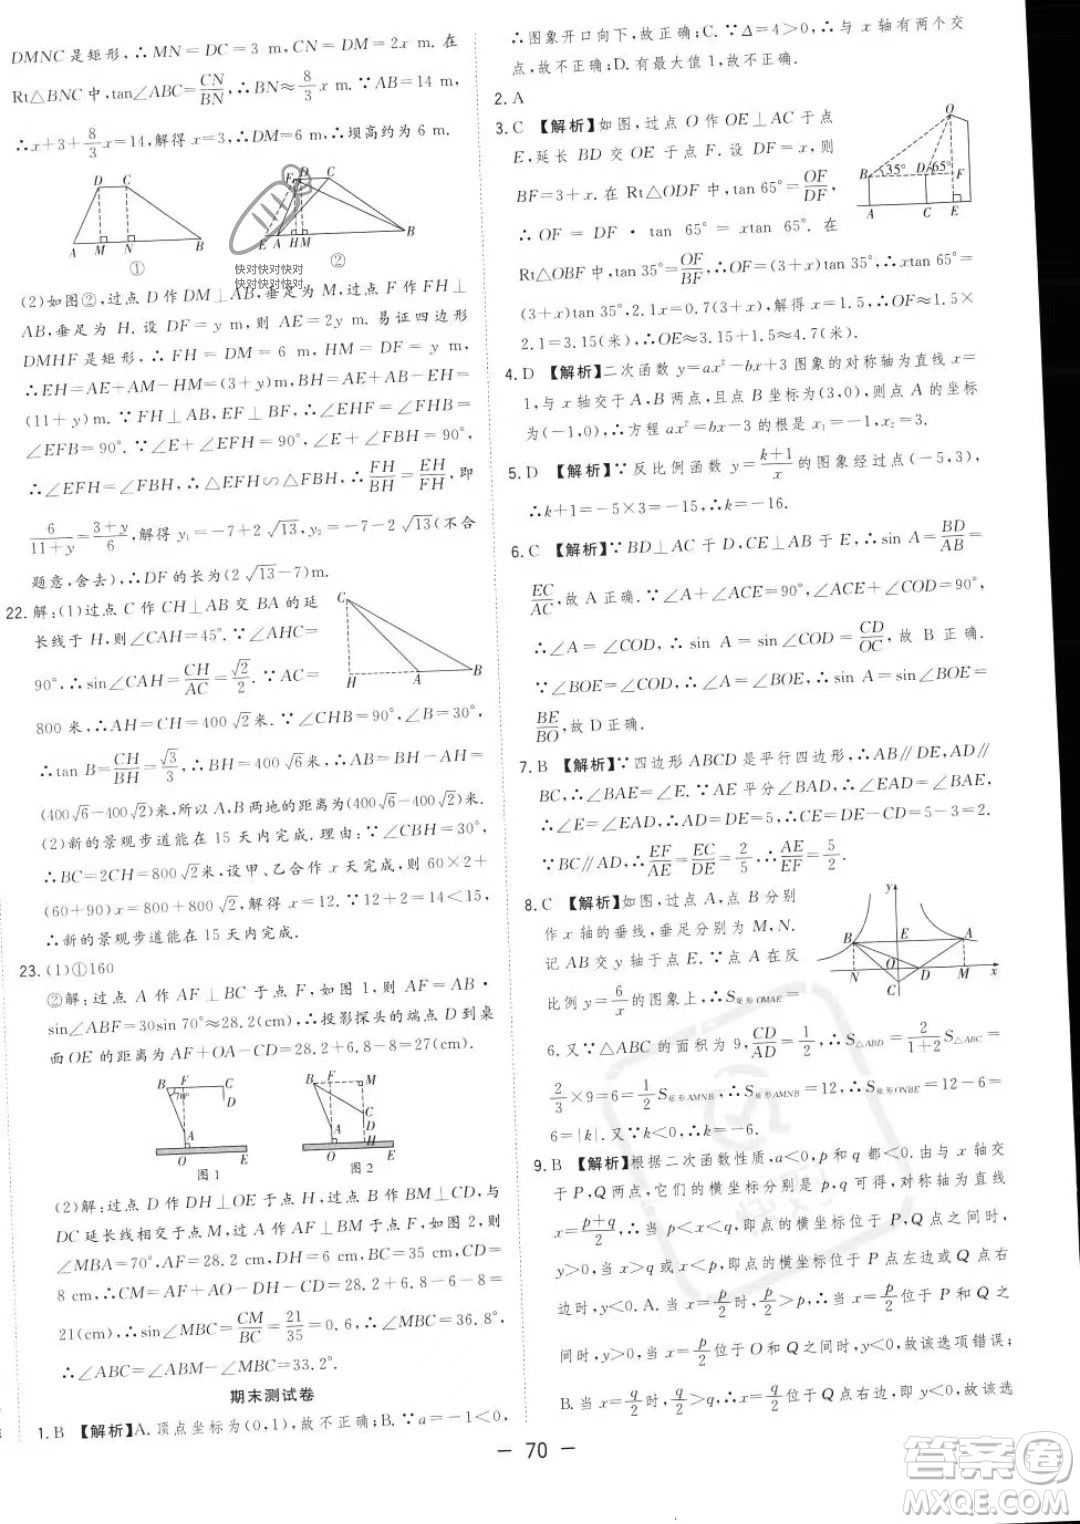 DMNC是矩形,∴MN=DC=3 m,CN=DM=2x m.在
Rt△BNC中,tan∠ABC=CN/BN,∴BN≈8/3 x m.∵AB=14 m,
∴x+3+8/3 x=14,解得x=3,∴DM=6 m,∴坝高约为6 m.
D C
A M N B
①
F D C
E A H M B
②
快对快对快对
快对快对快对
(2)如图②,过点D作DM⊥AB,垂足为M,过点F作FH⊥
AB,垂足为H.设DF=y m,则AE=2y m.易证四边形
DMHF是矩形,∴FH=DM=6 m,HM=DF=y m.
∴EH=AE+AM-HM=(3+y)m,∴BH=AB-AH=
(11+y)m.∵FH⊥AB,EF⊥BF,∴∠EHF=∠FHB=
∠EFB=90°.∵∠E+∠EFH=90°,∠EFH+∠BFH=90°,
∴∠EFH=∠FBH,∴△EFH∽△FBH,∴FH/BH=EH/FH,即
6/(11+y)=(3+y)/6,解得y₁=-7+2√13,y₂=-7-2√13(不合
题意,舍去),∴DF的长为(2√13-7)m.
22.解:(1)过点C作CH⊥AB交BA的延
长线于H,则∠CAH=45°.∵∠AHC=
90°,∴sin∠CAH=CH/AC=√2/2.∵AC=
C
H A B
800米,∴AH=CH=400√2米.∵∠CHB=90°,∠B=30°,
∴tan B=CH/BH=√3/3,∴BH=400√6米,∴AB=BH-AH=
(400√6-400√2)米,所以A,B两地的距离为(400√6-400√2)米.
(2)新的景观步道能在15天内完成.理由:∵∠CBH=30°,
∴BC=2CH=800√2米,设甲、乙合作x天完成,则60×2+
(60+90)x=800+800√2,解得x=12.∵12+2=14<15,
∴新的景观步道能在15天内完成.
23.(1)①160
②解:过点A作AF⊥BC于点F,如图1,可得AF=AB·
sin∠ABF=30sin 70°≈28.2(cm),∴投影探头的端点D到桌
面OE的距离为AF+OA-CD=28.2+6.8-8=27(cm).
B F C
70° D
A
O E
图1
B F M
C
D
A
O H E
图2
(2)解:过点D作DH⊥OE于点H,过点B作BM⊥CD,与
DC延长线相交于点M,过点A作AF⊥BM于点F,如图2,则
∠MBA=70°,AF=28.2 cm,DH=6 cm,BC=35 cm,CD=
8 cm,∴CM=AF+AO-DH-CD=28.2+6.8-6-8=
21(cm),∴sin∠MBC=CM/BC=21/35=0.6,∴∠MBC=36.8°,
∴∠ABC=∠ABM-∠MBC=33.2°.
期末测试卷
1.B 【解析】A.顶点坐标为(0,1),故不正确;B.∵a=-1<0,
∴图象开口向下,故正确;C.∵Δ=4>0,∴与x轴有两个交
点,故不正确;D.有最大值1,故不正确.
2.A
3.C 【解析】如图,过点O作OE⊥AC于点
E,延长BD交OE于点F.设DF=x,则
BF=3+x.在Rt△ODF中,tan 65°=OF/DF,
∴OF=DF·tan 65°=xtan 65°.在
Rt△OBF中,tan 35°=OF/BF,∴OF=(3+x)tan 35°,∴xtan 65°=
O
B 35° D 65° F
A C E
(3+x)tan35°,2.1x=0.7(3+x),解得x=1.5,∴OF≈1.5×
2.1=3.15(米),∴OE≈3.15+1.5≈4.7(米).
4.D 【解析】二次函数y=ax²-bx+3图象的对称轴为直线x=
1,与x轴交于A,B两点,且点B坐标为(3,0),则点A的坐标
为(-1,0),∴方程ax²=bx-3的根是x₁=-1,x₂=3.
5.D 【解析】∵反比例函数y=(k+1)/x的图象经过点(-5,3),
∴k+1=-5×3=-15,∴k=-16.
6.C 【解析】∵BD⊥AC于D,CE⊥AB于E,∴sin A=BD/AB=
EC/AC,故A正确.∵∠A+∠ACE=90°,∠ACE+∠COD=90°,
∴∠A=∠COD,∴sin A=sin∠COD=CD/OC,故B正确.
∵∠BOE=∠COD,∴∠A=∠BOE,∴sin A=sin∠BOE=
BE/BO,故D正确.
7.B 【解析】∵四边形ABCD是平行四边形,∴AB∥DE,AD∥
BC,∴∠BAE=∠E.∵AE平分∠BAD,∴∠EAD=∠BAE,
∴∠E=∠EAD,∴AD=DE=5,∴CE=DE-CD=5-3=2.
∵BC∥AD,∴EF/AE=EC/DE=2/5,∴AE/EF=5/2.
8.C 【解析】如图,过点A,点B分别
作x轴的垂线,垂足分别为M,N.
记AB交y轴于点E.∵点A在反
比例y=6/x的图象上,∴S矩形OMAE=
y
B E A
N O D M x
C
6.又∵△ABC的面积为9,CD/AD=1/2,∴S△ABD=2/(1+2) S△ABC=
2/3×9=6=1/2 S矩形AMNB,∴S矩形AMNB=12,∴S矩形ONBE=12-
6=|k|.又∵k<0,∴k=-6.
9.B 【解析】根据二次函数性质,a<0,p和q都<0,由与x轴交
于P,Q两点,它们的横坐标分别是p,q可得,对称轴为直线
x=(p+q)/2,∴当p<x<q,即点的横坐标位于P,Q点之间时,
y>0;当x>q或x<p,即点的横坐标位于P点左边或Q点右
边时,y<0.A.当x=p/2时,p/2>p,∴当x=p/2位于P和Q点之
间时,y>0;当x=p/2位于O和Q之间时,y<0,故该选项错误;
B.当x=q/2时,q/2>q,∴当x=q/2位于Q点右边,y<0,故该选
— 70 —
答案圈
MXQE.COM